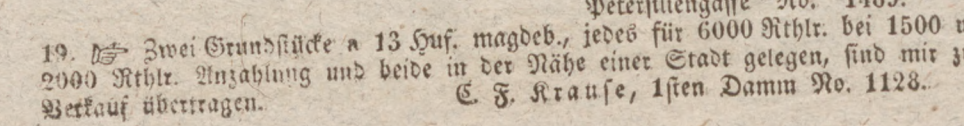 Petersiliengasse No. 1485.
19. ☞ Zwei Grundstücke a 13 Huf. magdeb., jedes für 6000 Rthlr. bei 1500 u
2000 Rthlr. Anzahlung und beide in der Nähe einer Stadt gelegen, sind mir z
Verkauf übertragen. C. F. Krause, 1sten Damm No. 1128.